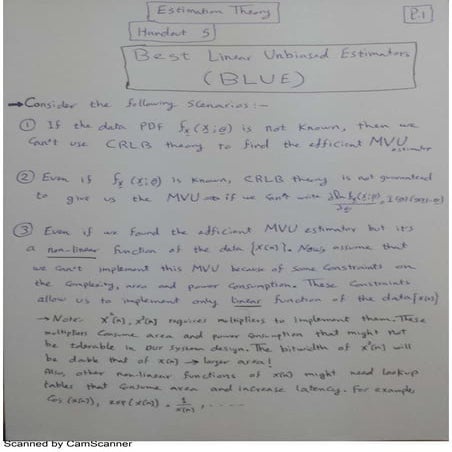 Estimation Theory
P.1
Handout 5
Best Linear Unbiased Estimators
(BLUE)
→ Consider the following scenarios:-
① If the data PDF fx(x;θ) is not known, then we
can't use CRLB theory to find the efficient MVU estimator
② Even if fx(x;θ) is known, CRLB theory is not guaranteed
to give us the MVU if we can't write
③ Even if we found the efficient MVU estimator but it's
a non-linear function of the data {x[n]}. Now assume that
we can't implement this MVU because of some constraints on
the complexity, area and power consumption. These constraints
allow us to implement only linear function of the data {x[n]}
→ Note: requires multipliers to implement them. These
multipliers consume area and power consumption that might not
be tolerable in our system design. The bitwidth of x²[n] will
be double that of x[n] → larger area!
Also, other non-linear functions of x[n] might need lookup
tables that consume area and increase latency. For example,
cos(x[n]), exp(x[n]), 1/x[n], .....
Scanned by CamScanner